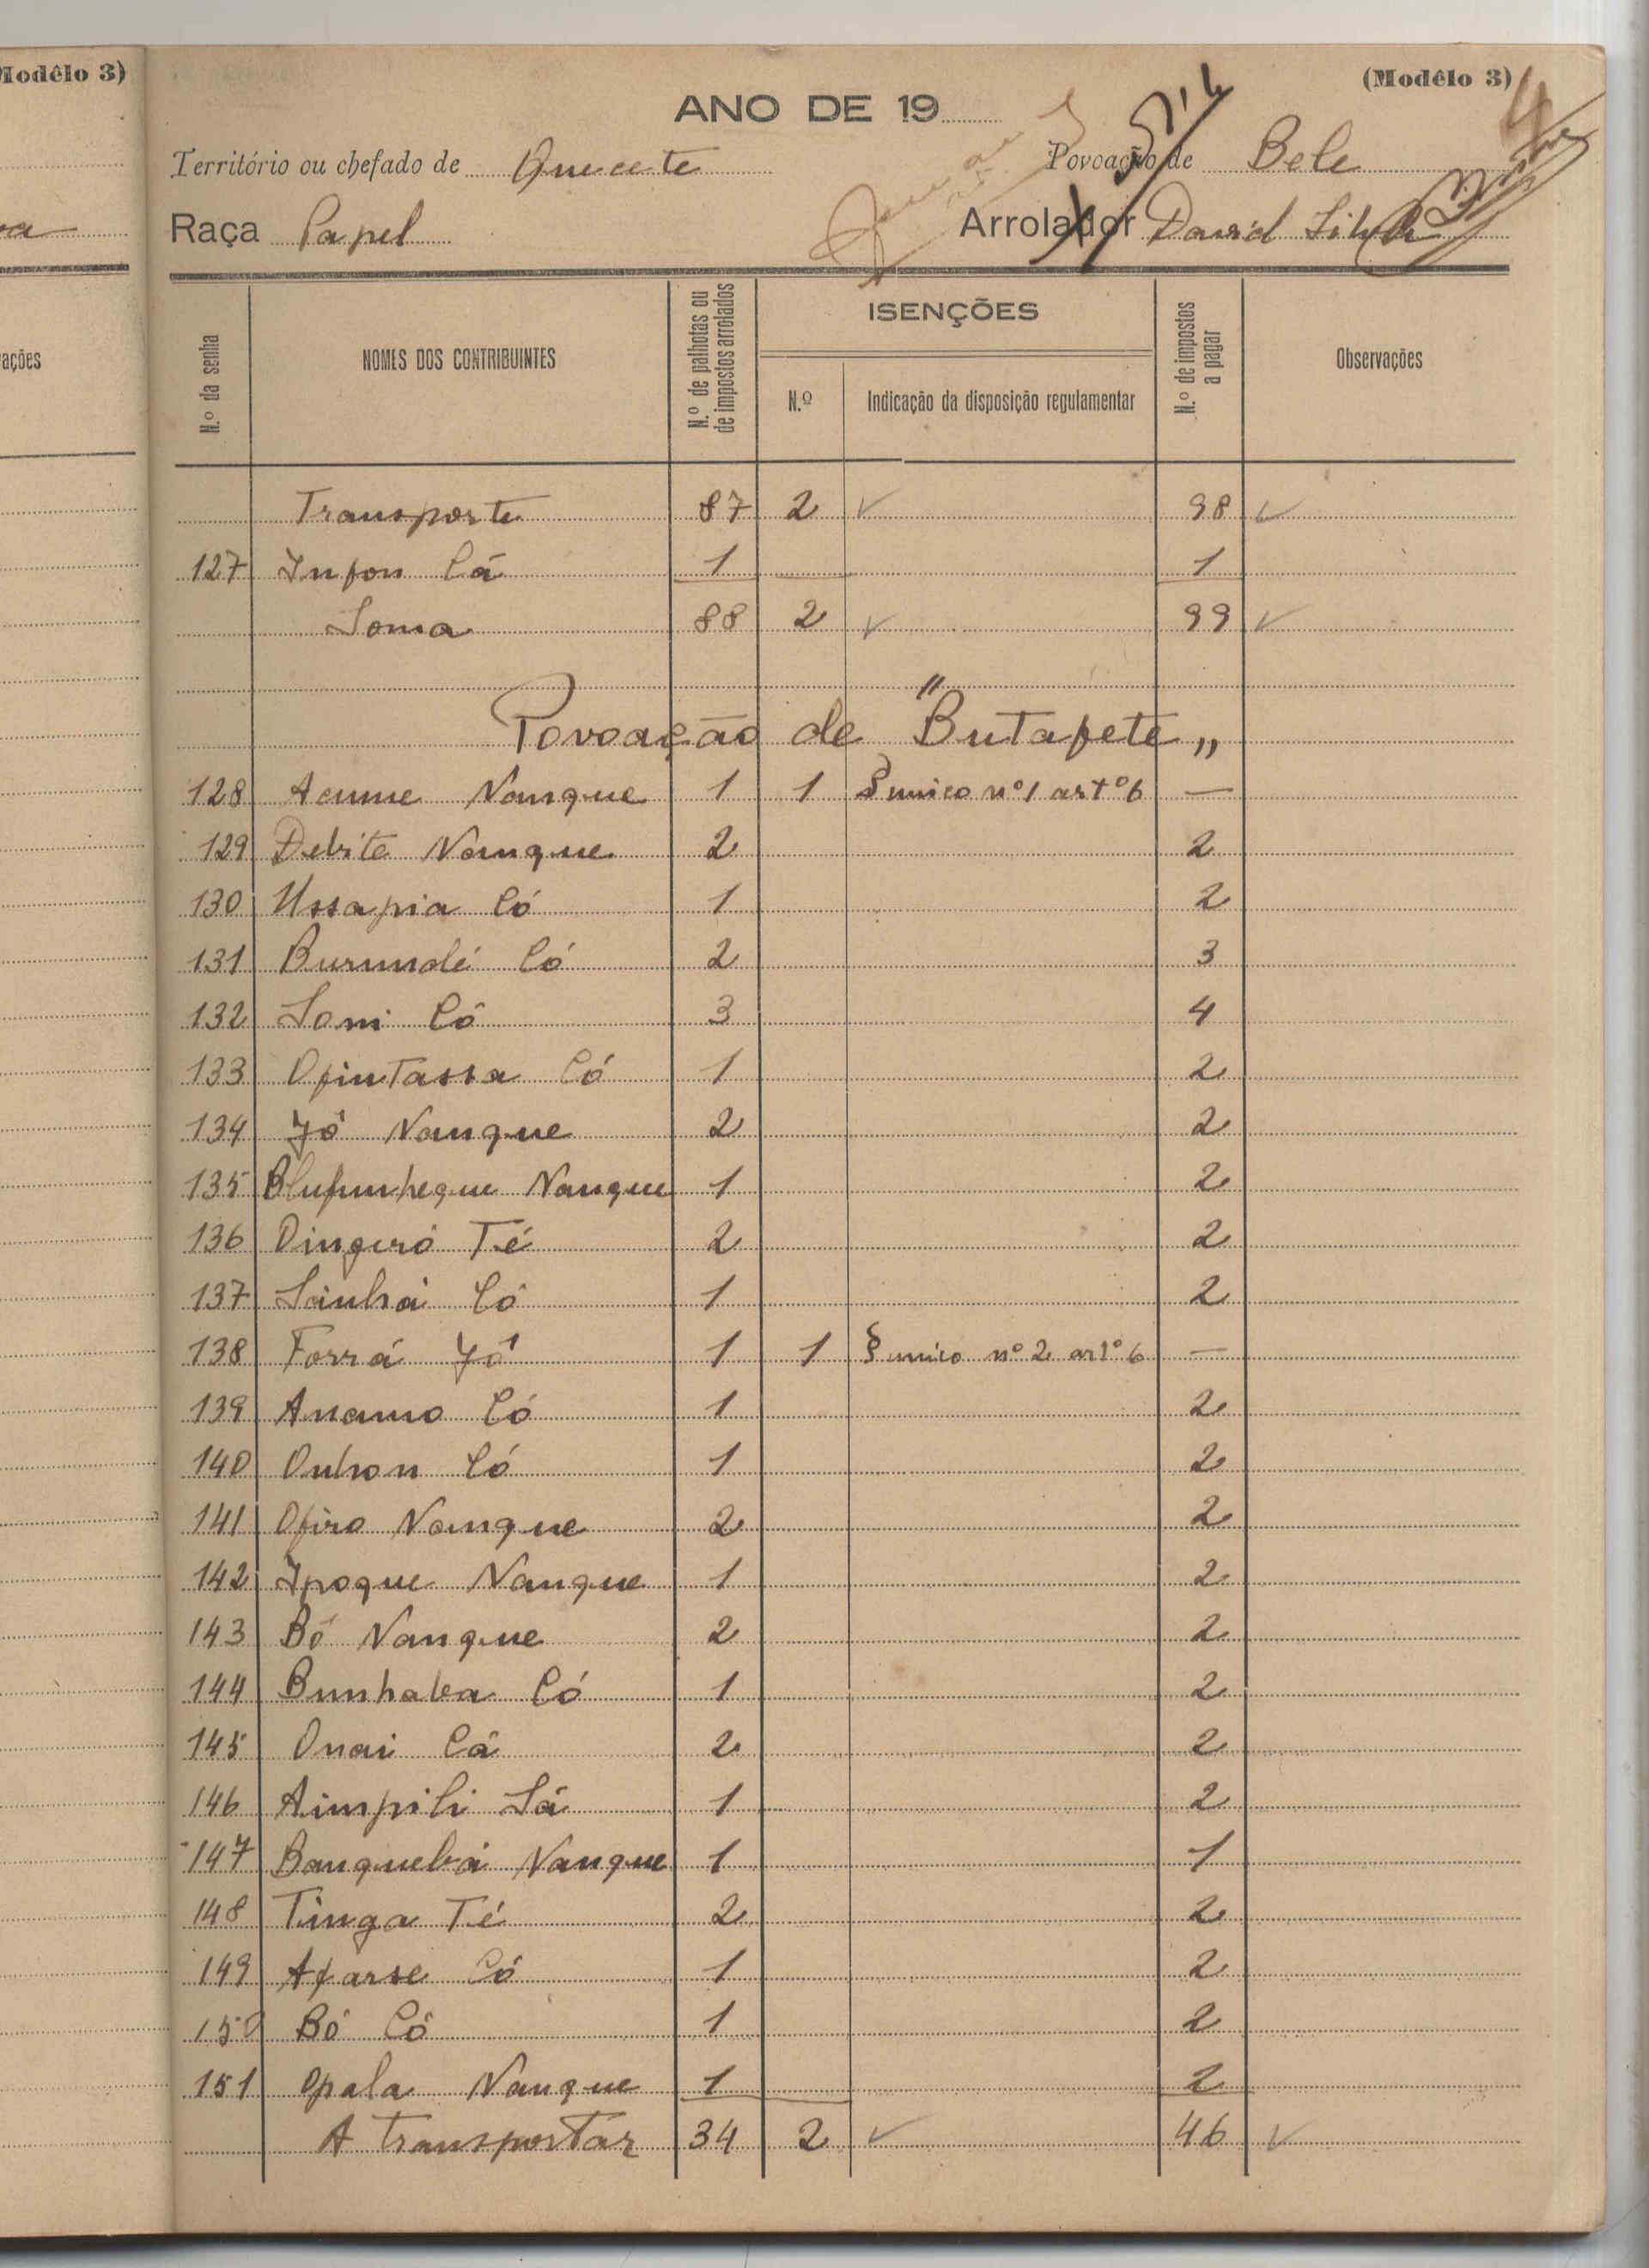 Modêlo 3)
ações
(Modêlo 3)
ANO DE 19
Território ou chefado de Povoação de Bele
Raça Papel Arrolador David Silva
N.º da senha
NOMES DOS CONTRIBUINTES
N.º de palhotas ou de impostos arrolados
ISENÇÕES
N.º
Indicação da disposição regulamentar
N.º de impostos a pagar
Observações
Transporte 87 2 ✓ 98 ✓
127 Infon Cá 1 1
Soma 88 2 ✓ 99 ✓
Povoação de "Butafete"
128 Acume Nanque 1 1 § unico nº 1 artº 6 —
129 Debite Nanque 2 2
130 Ussapia Có 1 2
131 Burundé Có 2 3
132 Soni Có 3 4
133 Ofintassa Có 1 2
134 Jó Nanque 2 2
135 Nanque 1 2
136 Dingeró Té 2 2
137 Sainhá Có 1 2
138 Forrá Jó 1 1 § unico nº 2 artº 6 —
139 Anamo Có 1 2
140 Onhon Có 1 2
141 Ofiro Nanque 2 2
142 Ipoque Nanque 1 2
143 Bó Nanque 2 2
144 Bunhaba Có 1 2
145 Onai Cá 2 2
146 Aimpili Sá 1 2
147 Banquebá Nanque 1 1
148 Tinga Té 2 2
149 Afarse Có 1 2
150 Bó Có 1 2
151 Opala Nanque 1 2
A transportar 34 2 ✓ 46 ✓